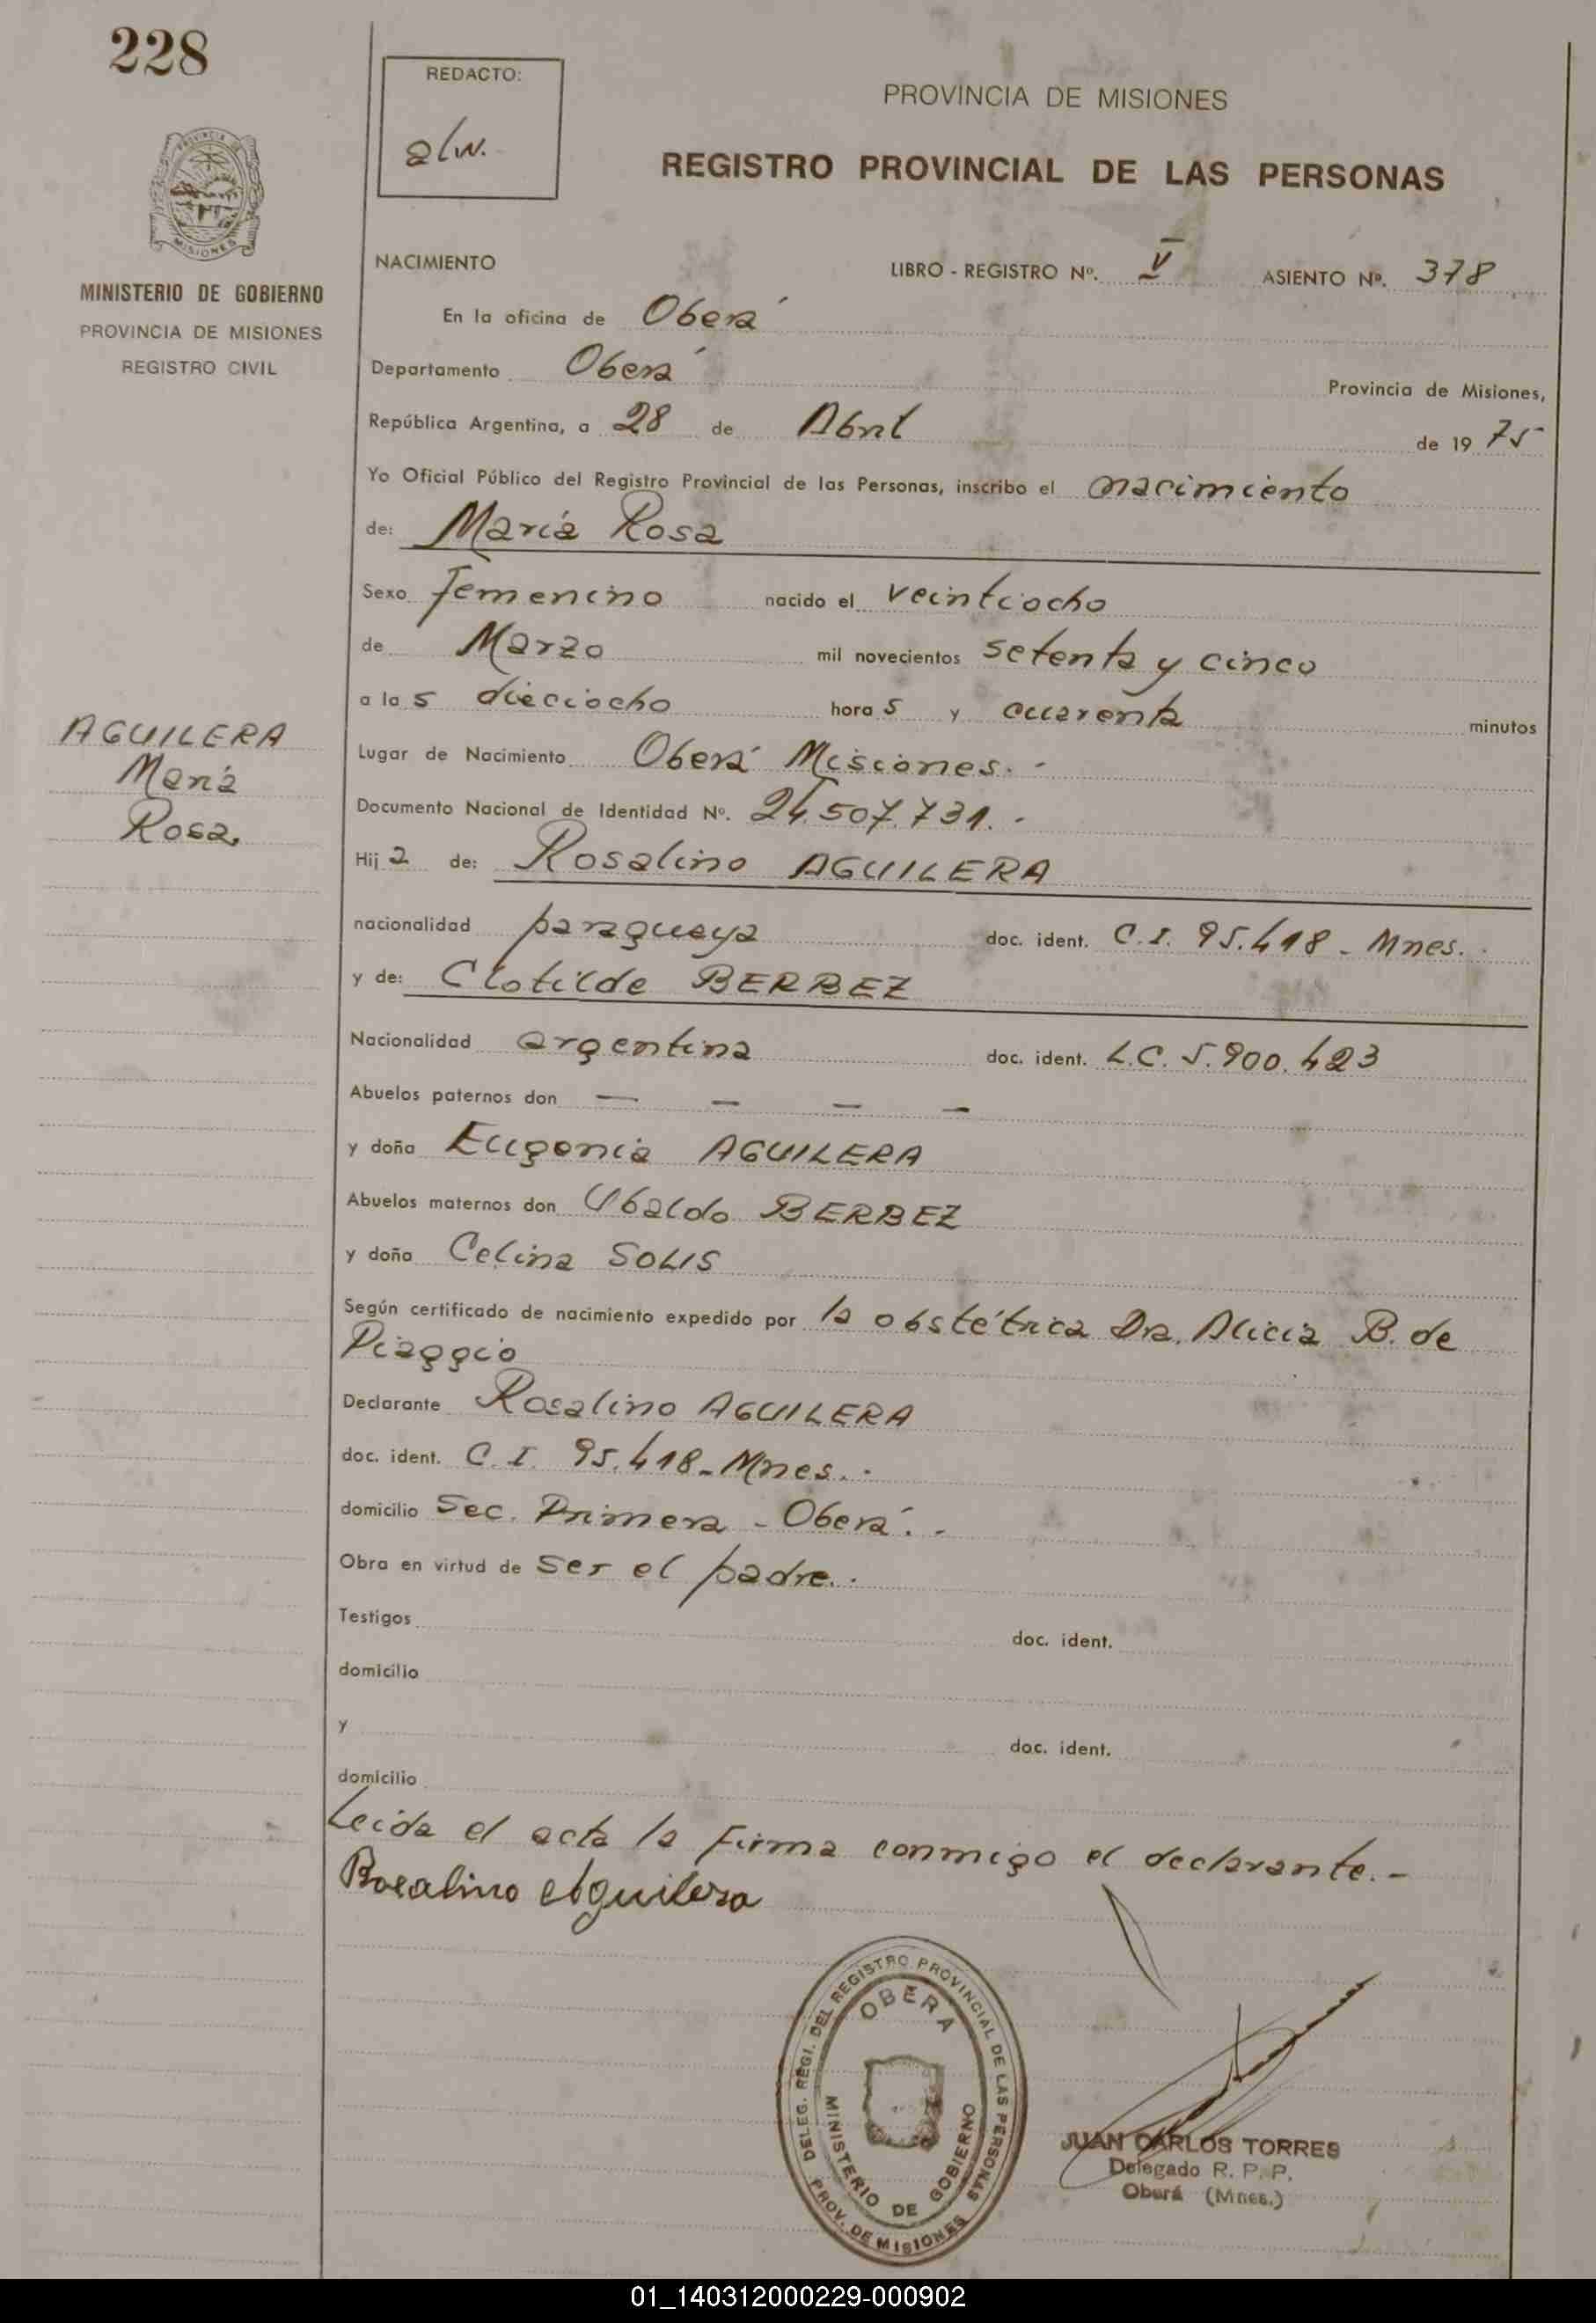 228
REDACTO:
a/w.
PROVINCIA DE MISIONES
REGISTRO PROVINCIAL DE LAS PERSONAS
PROVINCIA DE
MISIONES
MINISTERIO DE GOBIERNO
PROVINCIA DE MISIONES
REGISTRO CIVIL
NACIMIENTO LIBRO - REGISTRO Nº. V ASIENTO Nº. 378
En la oficina de Oberá
Departamento Oberá Provincia de Misiones,
República Argentina, a 28 de Abril de 1975
Yo Oficial Público del Registro Provincial de las Personas, inscribo el nacimiento
de: María Rosa
Sexo femenino nacido el veintiocho
de Marzo mil novecientos setenta y cinco
a las dieciocho horas y cuarenta minutos
AGUILERA
María
Rosa.
Lugar de Nacimiento Oberá Misiones.-
Documento Nacional de Identidad Nº. 24.507.731.-
Hija de: Rosalino AGUILERA
nacionalidad paraguaya doc. ident. C.I. 95.418 - Mnes.-
y de: Clotilde BERBEZ
Nacionalidad argentina doc. ident. L.C. 5.900.423
Abuelos paternos don — — — —
y doña Eugenia AGUILERA
Abuelos maternos don Ubaldo BERBEZ
y doña Celina SOLIS
Según certificado de nacimiento expedido por la obstétrica Dra. Alicia B. de
Piaggio
Declarante Rosalino AGUILERA
doc. ident. C.I. 95.418-Mnes.-
domicilio Sec. Primera - Oberá.-
Obra en virtud de ser el padre.-
Testigos doc. ident.
domicilio
y doc. ident.
domicilio
Leida el acta la firma conmigo el declarante.-
Rosalino Aguilera
DELEG. REGI. DEL REGISTRO PROVINCIAL DE LAS PERSONAS
OBERA
MINISTERIO DE GOBIERNO
PROV. DE MISIONES
JUAN CARLOS TORRES
Delegado R. P. P.
Oberá (Mnes.)
01_140312000229-000902